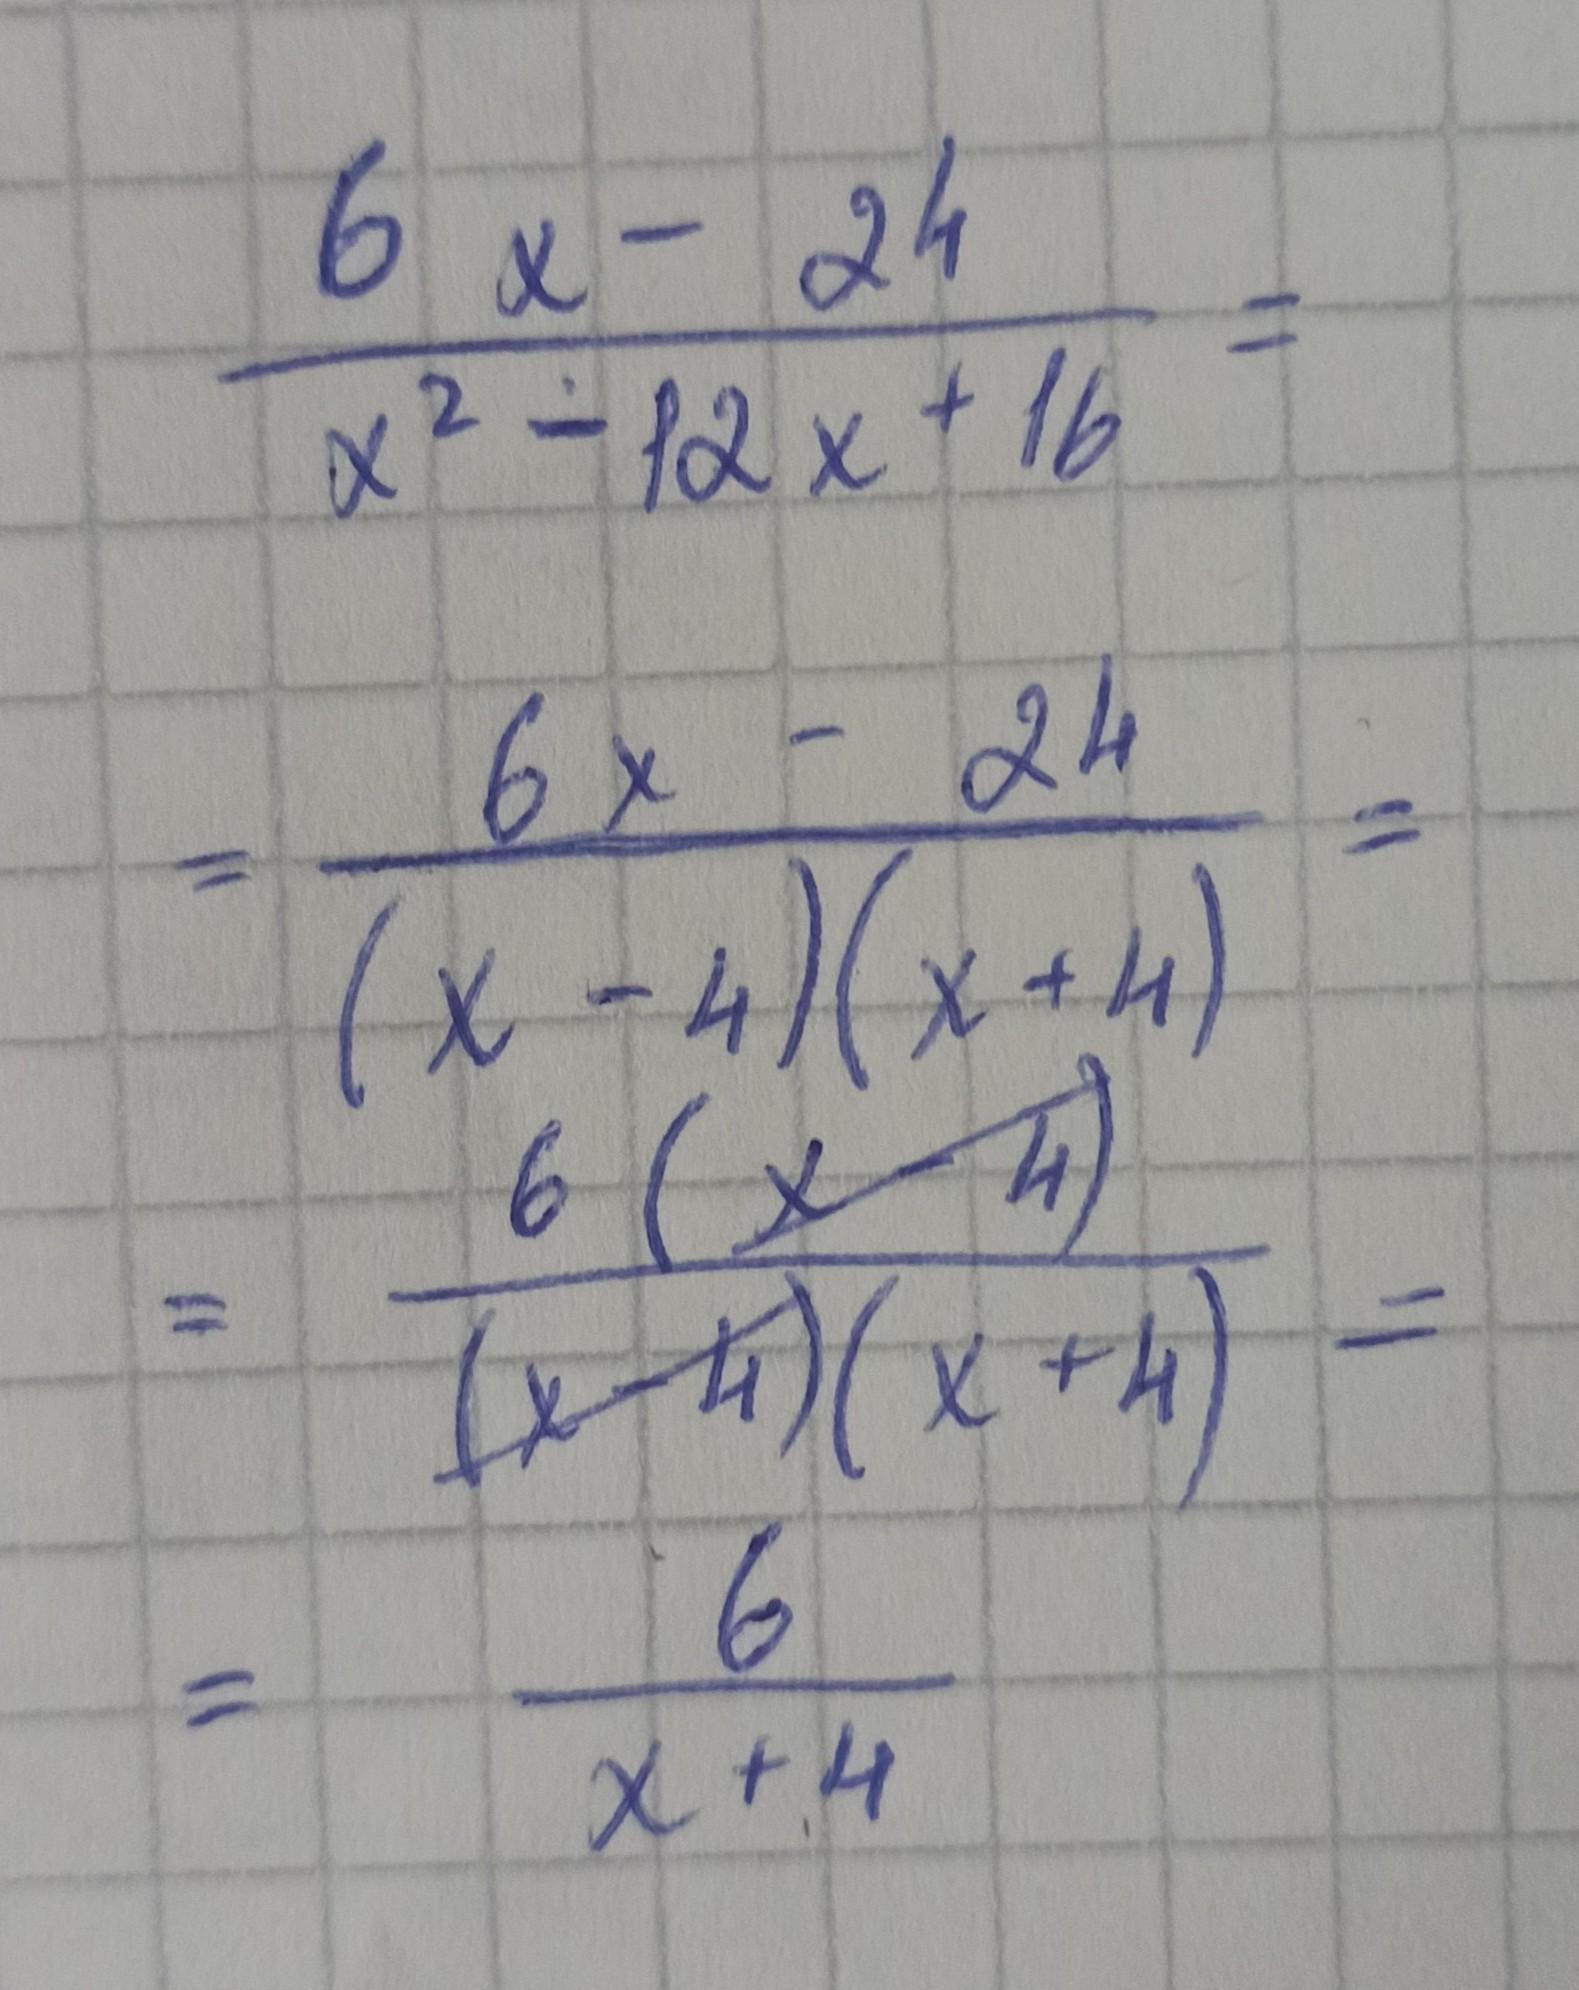 6x - 24 =
x² - 12x + 16
= 6x - 24 =
(x - 4)(x + 4)
= 6(x - 4) =
(x - 4)(x + 4)
= 6
x + 4